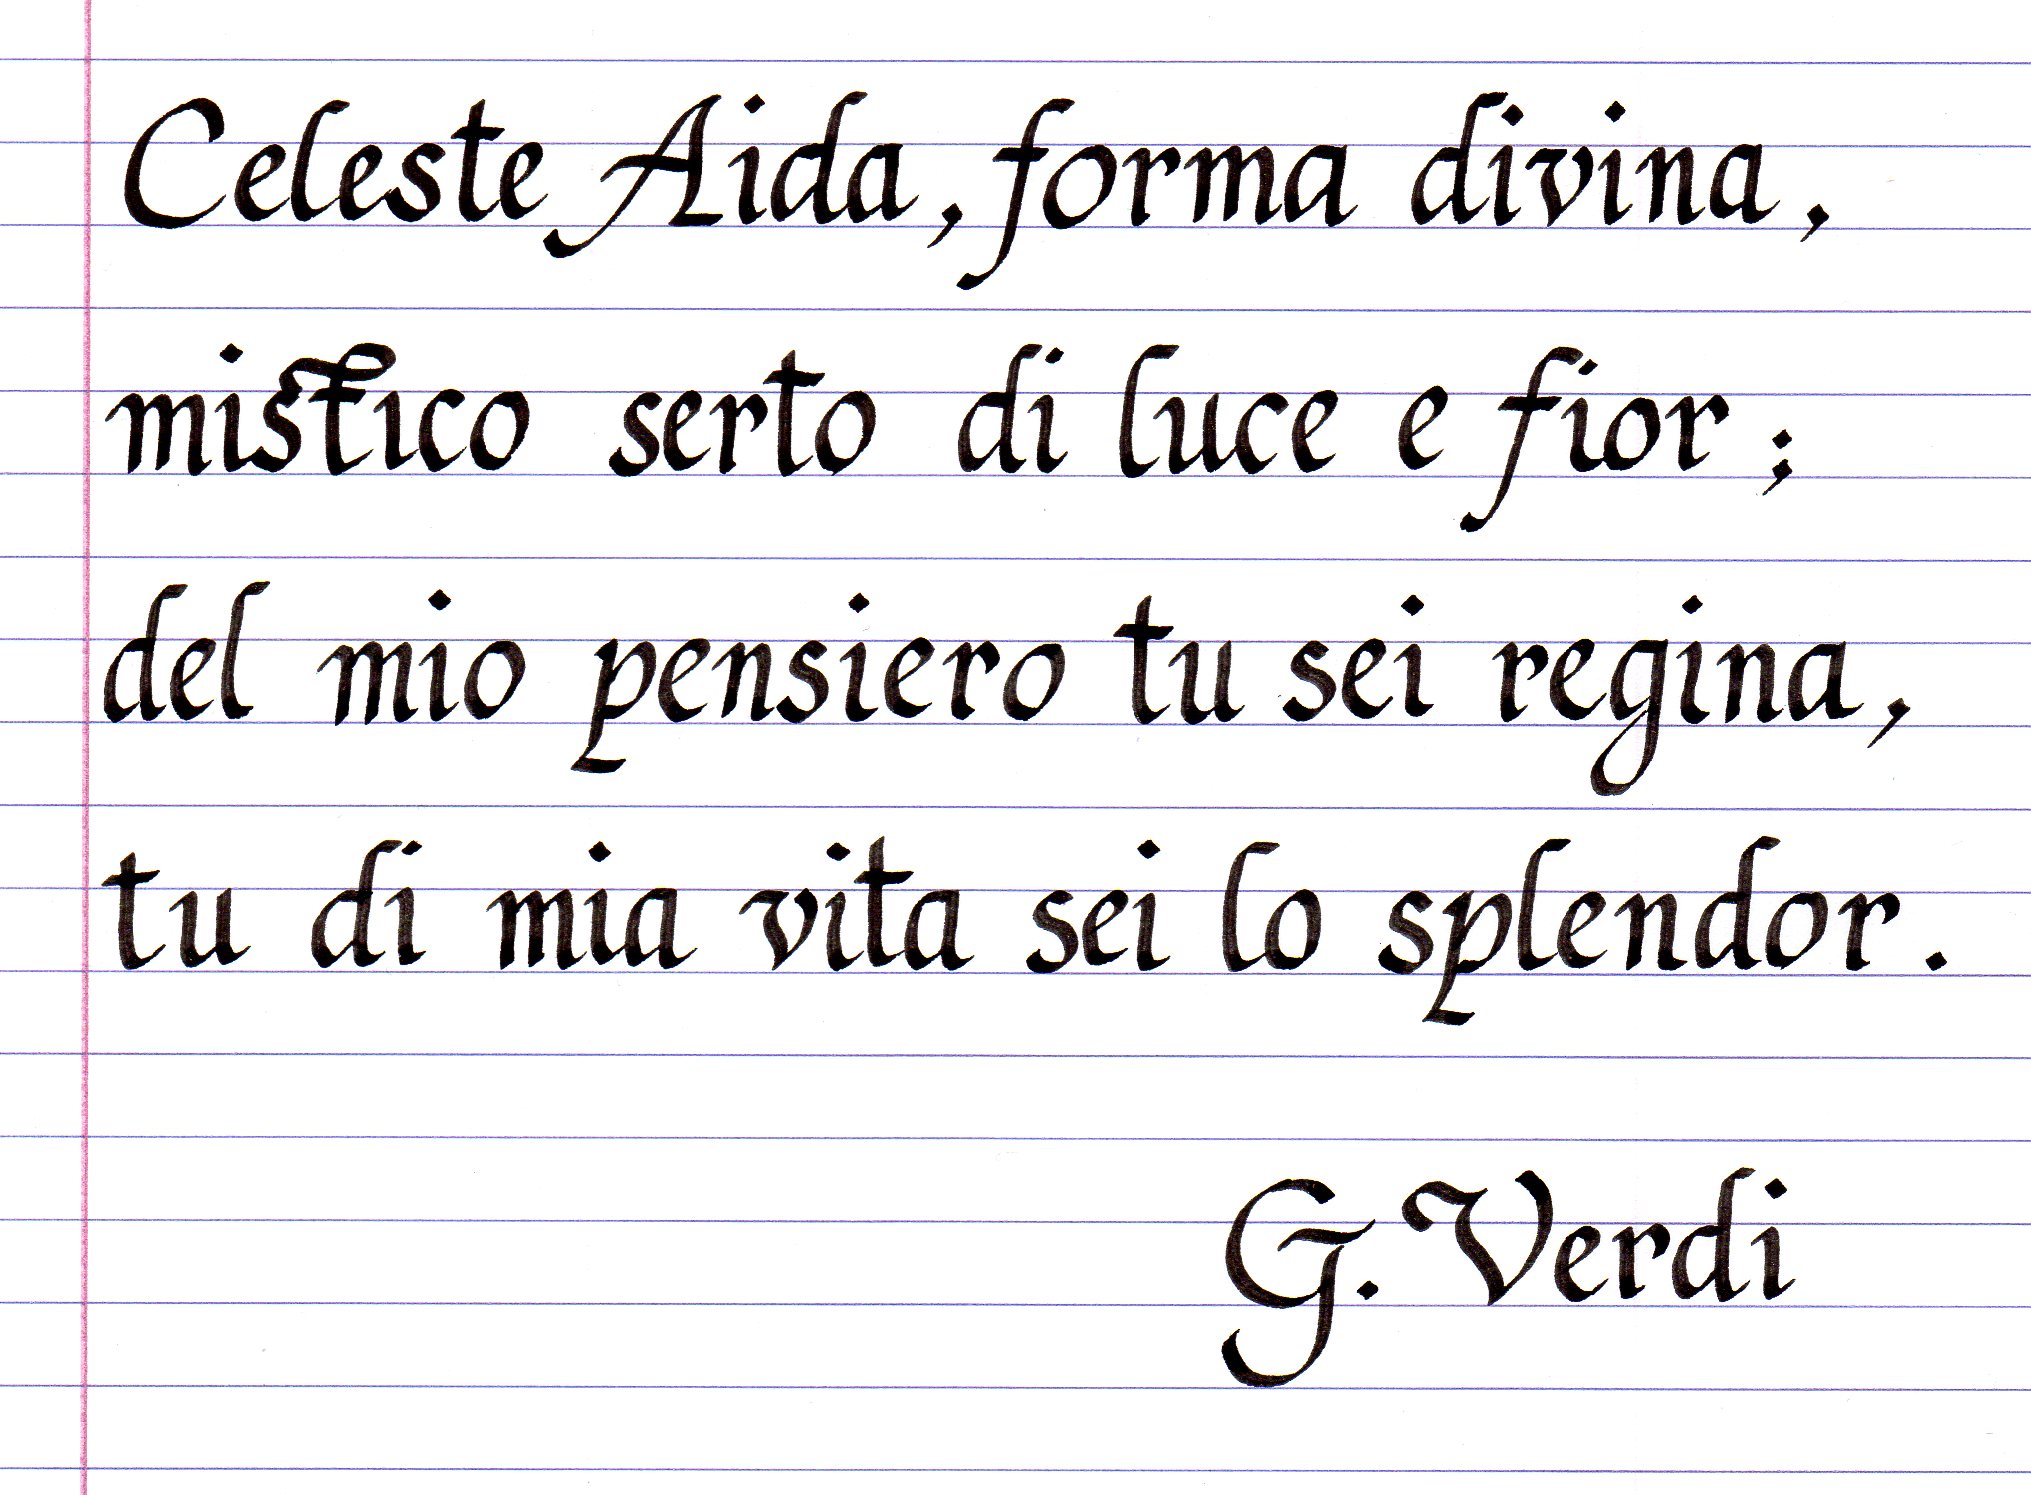 Celeste Aida, forma divina,
mistico serto di luce e fior;
del mio pensiero tu sei regina,
tu di mia vita sei lo splendor.
G. Verdi